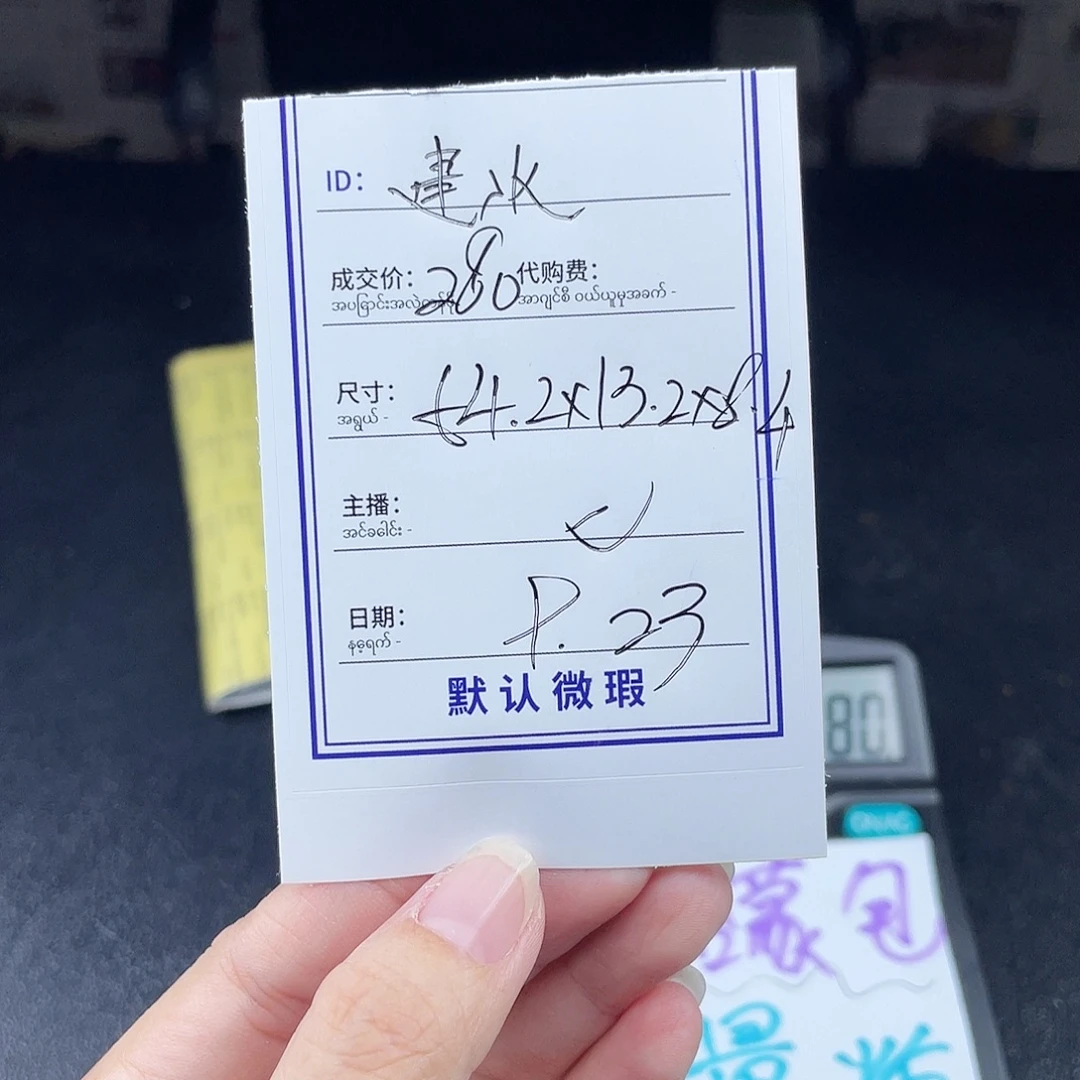 ID: 建水
成交价: 280 代购费:
အပြောင်းအလဲ
အာဂျင်စီ ဝယ်ယူမှုအခက် -
尺寸: 54.2x13.2x8.4
အရွယ် -
主播:
အင်ခခေါင်း -
日期: 23
နေ့ရက် -
默认微瑕
80
蒙包